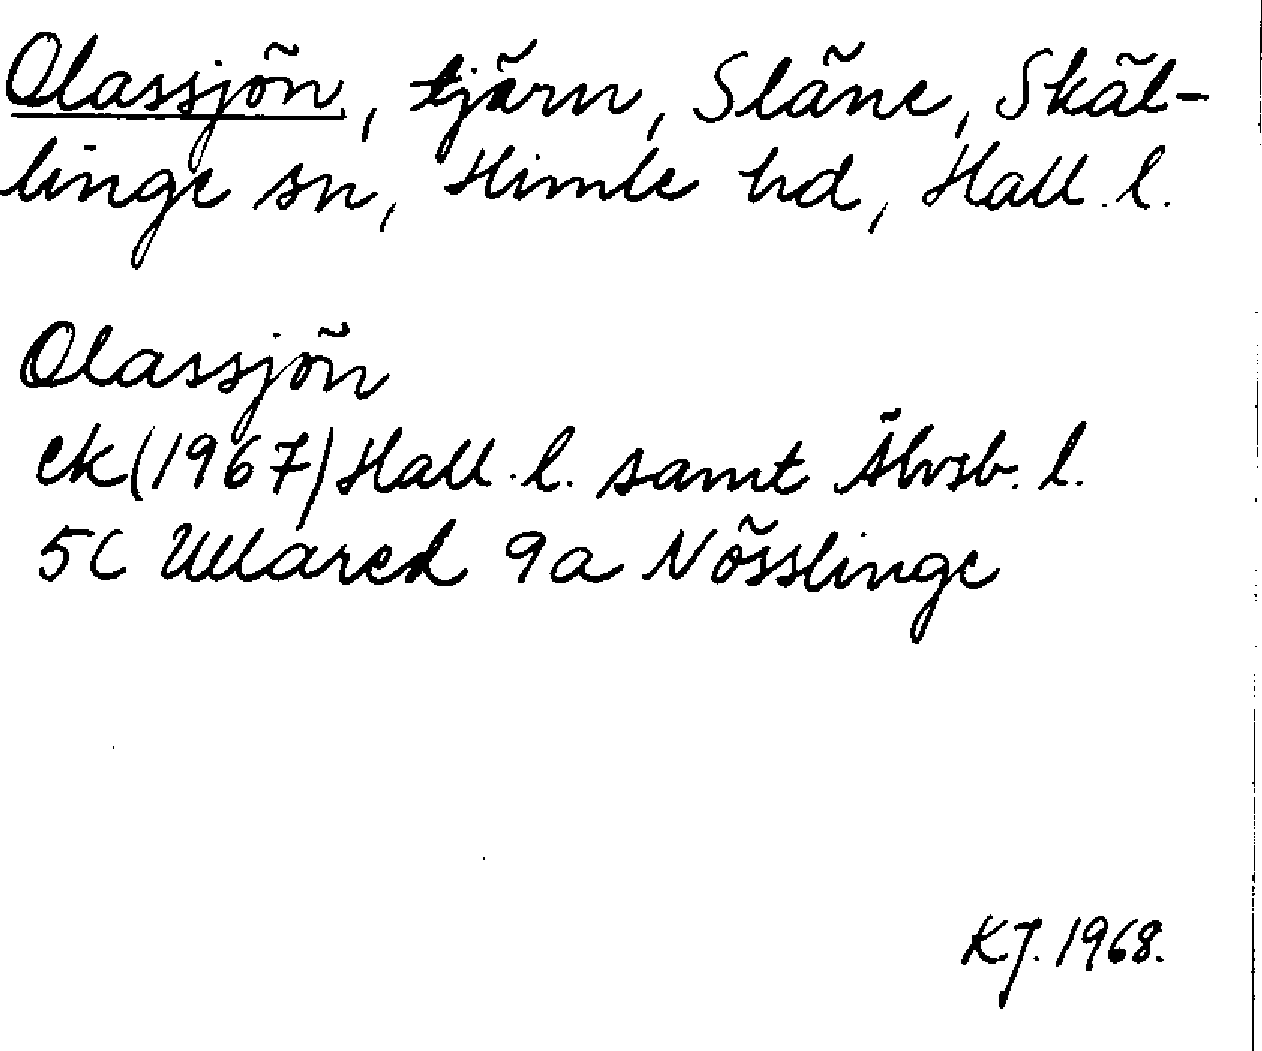 Olassjön, tjärn, Släne, Skäl-
linge sn, Himle hd, Hall. l.
Olassjön
ek (1967) Hall. l. samt Älvsb. l.
5C Ullared 9a Nösslinge
K.J. 1968.